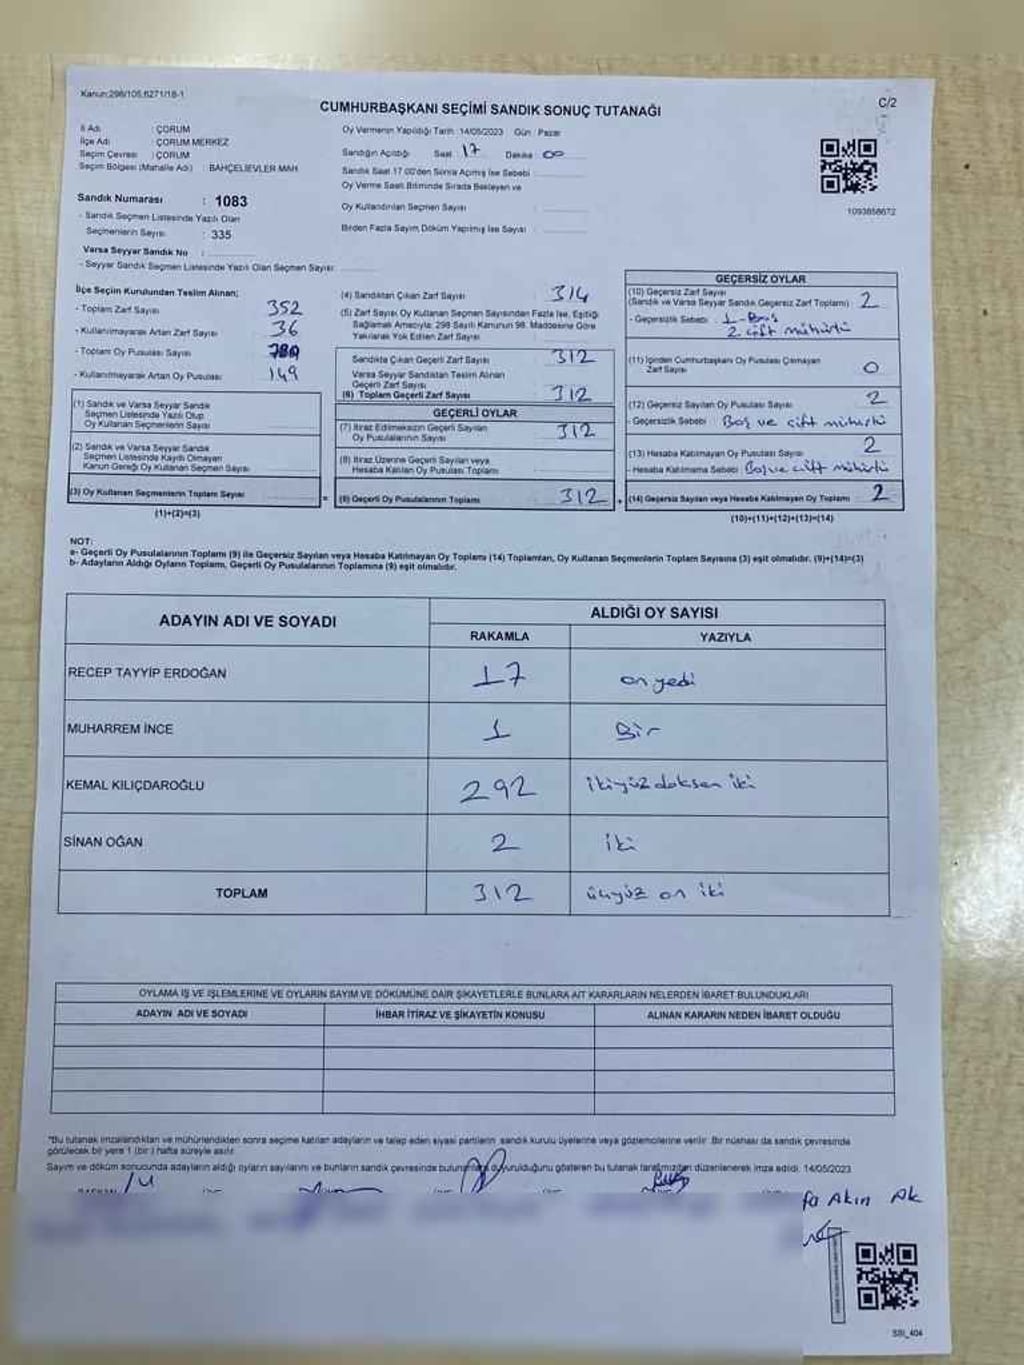 Kanun:298/105,6271/18-1
CUMHURBAŞKANI SEÇİMİ SANDIK SONUÇ TUTANAĞI
C/2
İl Adı : ÇORUM
İlçe Adı : ÇORUM MERKEZ
Seçim Çevresi : ÇORUM
Seçim Bölgesi (Mahalle Adı) : BAHÇELİEVLER MAH.
Oy Vermenin Yapıldığı Tarih: 14/05/2023 Gün : Pazar
Sandığın Açıldığı Saat : 17 Dakika : 00
Sandık Saat 17.00'den Sonra Açılmış İse Sebebi
Oy Verme Saati Bitiminde Sırada Bekleyen ve
Oy Kullandırılan Seçmen Sayısı :
Birden Fazla Sayım Döküm Yapılmış İse Sayısı :
1093858672
Sandık Numarası : 1083
- Sandık Seçmen Listesinde Yazılı Olan
Seçmenlerin Sayısı : 335
Varsa Seyyar Sandık No :
- Seyyar Sandık Seçmen Listesinde Yazılı Olan Seçmen Sayısı:
İlçe Seçim Kurulundan Teslim Alınan;
- Toplam Zarf Sayısı 352
- Kullanılmayarak Artan Zarf Sayısı 36
- Toplam Oy Pusulası Sayısı
- Kullanılmayarak Artan Oy Pusulası 149
(1) Sandık ve Varsa Seyyar Sandık
Seçmen Listesinde Yazılı Olup
Oy Kullanan Seçmenlerin Sayısı
(2) Sandık ve Varsa Seyyar Sandık
Seçmen Listesinde Kaydı Olmayan
Kanun Gereği Oy Kullanan Seçmen Sayısı
(3) Oy Kullanan Seçmenlerin Toplam Sayısı =
(1)+(2)=(3)
(4) Sandıktan Çıkan Zarf Sayısı 314
(5) Zarf Sayısı Oy Kullanan Seçmen Sayısından Fazla İse, Eşitliği
Sağlamak Amacıyla; 298 Sayılı Kanunun 98. Maddesine Göre
Yakılarak Yok Edilen Zarf Sayısı
Sandıkta Çıkan Geçerli Zarf Sayısı 312
Varsa Seyyar Sandıktan Teslim Alınan
Geçerli Zarf Sayısı
(6) Toplam Geçerli Zarf Sayısı 312
GEÇERLİ OYLAR
(7) İtiraz Edilmeksizin Geçerli Sayılan
Oy Pusulalarının Sayısı 312
(8) İtiraz Üzerine Geçerli Sayılan veya
Hesaba Katılan Oy Pusulası Toplamı
(9) Geçerli Oy Pusulalarının Toplamı 312 +
GEÇERSİZ OYLAR
(10) Geçersiz Zarf Sayısı
(Sandık ve Varsa Seyyar Sandık Geçersiz Zarf Toplamı) 2
- Geçersizlik Sebebi : 1 - Boş
2 çift mühürlü
(11) İçinden Cumhurbaşkanı Oy Pusulası Çıkmayan
Zarf Sayısı 0
(12) Geçersiz Sayılan Oy Pusulası Sayısı 2
- Geçersizlik Sebebi Boş ve çift mühürlü
(13) Hesaba Katılmayan Oy Pusulası Sayısı 2
- Hesaba Katılmama Sebebi Boş ve çift mühürlü
(14) Geçersiz Sayılan veya Hesaba Katılmayan Oy Toplamı 2
(10)+(11)+(12)+(13)=(14)
NOT:
a- Geçerli Oy Pusulalarının Toplamı (9) ile Geçersiz Sayılan veya Hesaba Katılmayan Oy Toplamı (14) Toplamları, Oy Kullanan Seçmenlerin Toplam Sayısına (3) eşit olmalıdır. (9)+(14)=(3)
b- Adayların Aldığı Oyların Toplamı, Geçerli Oy Pusulalarının Toplamına (9) eşit olmalıdır.
ADAYIN ADI VE SOYADI
ALDIĞI OY SAYISI
RAKAMLA YAZIYLA
RECEP TAYYİP ERDOĞAN 17 on yedi
MUHARREM İNCE 1 Bir
KEMAL KILIÇDAROĞLU 292 ikiyüz doksan iki
SİNAN OĞAN 2 iki
TOPLAM 312 üçyüz on iki
OYLAMA İŞ VE İŞLEMLERİNE VE OYLARIN SAYIM VE DÖKÜMÜNE DAİR ŞİKAYETLERLE BUNLARA AİT KARARLARIN NELERDEN İBARET BULUNDUKLARI
ADAYIN ADI VE SOYADI İHBAR İTİRAZ VE ŞİKAYETİN KONUSU ALINAN KARARIN NEDEN İBARET OLDUĞU
*Bu tutanak imzalandıktan ve mühürlendikten sonra seçime katılan adayların ve talep eden siyasi partilerin sandık kurulu üyelerine veya gözlemcilerine verilir. Bir nüshası da sandık çevresinde
görülecek bir yere 1 (bir) hafta süreyle asılır.
Sayım ve döküm sonucunda adayların aldığı oyların sayılarını ve bunların sandık çevresinde duyurulduğunu gösteren bu tutanak tarafımızdan düzenlenerek imza edildi. 14/05/2023
Akın Ak
SSI_404